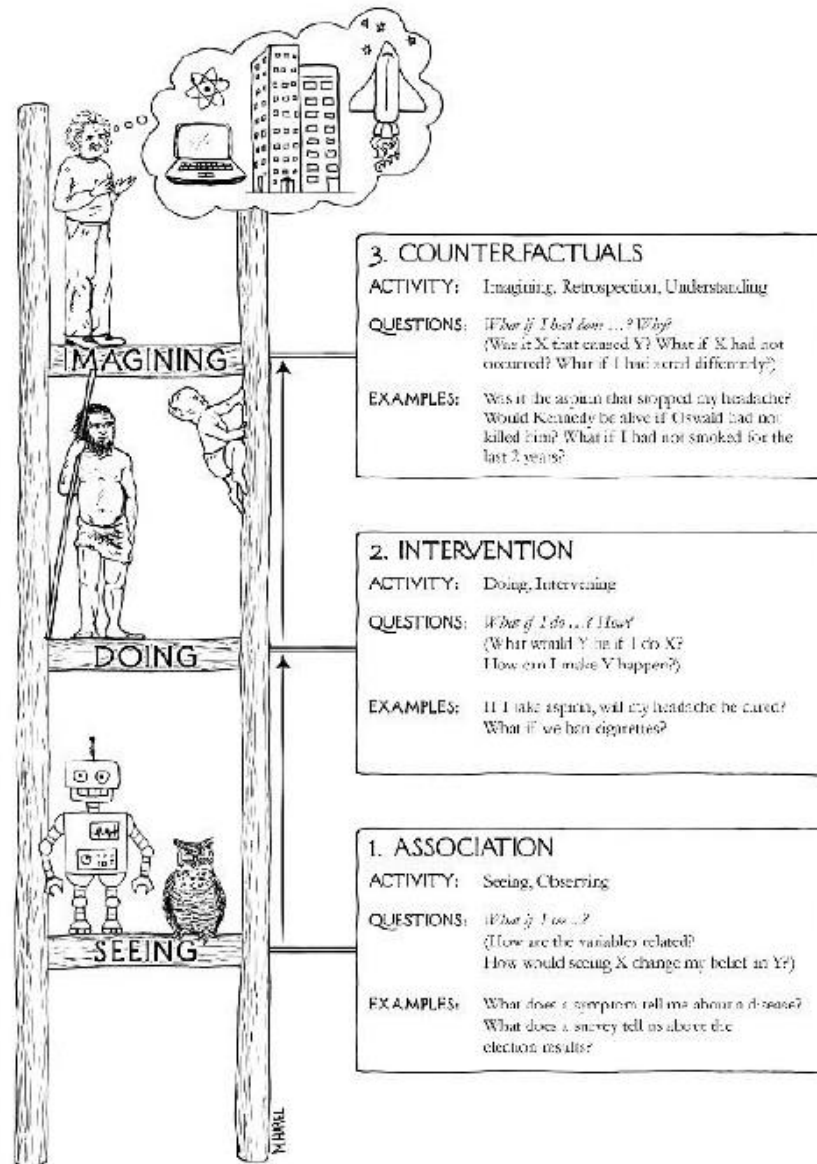 IMAGINING
DOING
SEEING
3. COUNTERFACTUALS
ACTIVITY: Imagining, Retrospection, Understanding
QUESTIONS: What if I had done ...? Why?
(Was it X that caused Y? What if X had not
occurred? What if I had acted differently?)
EXAMPLES: Was it the aspirin that stopped my headache?
Would Kennedy be alive if Oswald had not
killed him? What if I had not smoked for the
last 2 years?
2. INTERVENTION
ACTIVITY: Doing, Intervening
QUESTIONS: What if I do ...? How?
(What would Y be if I do X?
How can I make Y happen?)
EXAMPLES: If I take aspirin, will my headache be cured?
What if we ban cigarettes?
1. ASSOCIATION
ACTIVITY: Seeing, Observing
QUESTIONS: What if I see ...?
(How are the variables related?
How would seeing X change my belief in Y?)
EXAMPLES: What does a symptom tell me about a disease?
What does a survey tell us about the
election results?
M.HAREL